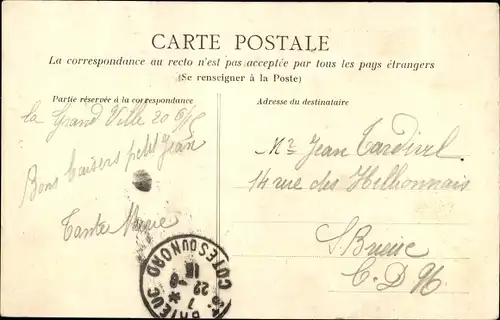 CARTE POSTALE
La correspondance au recto n'est pas acceptée par tous les pays étrangers
(Se renseigner à la Poste)
Partie réservée à la correspondance
Adresse du destinataire
la Grand Ville 20
Bons baisers petit Jean
Tante
Mr Jean Tardivel
14 rue des Hillionnais
S. Brieuc
C. D N.
BRIEUC
COTES DU NORD
7
22 -8